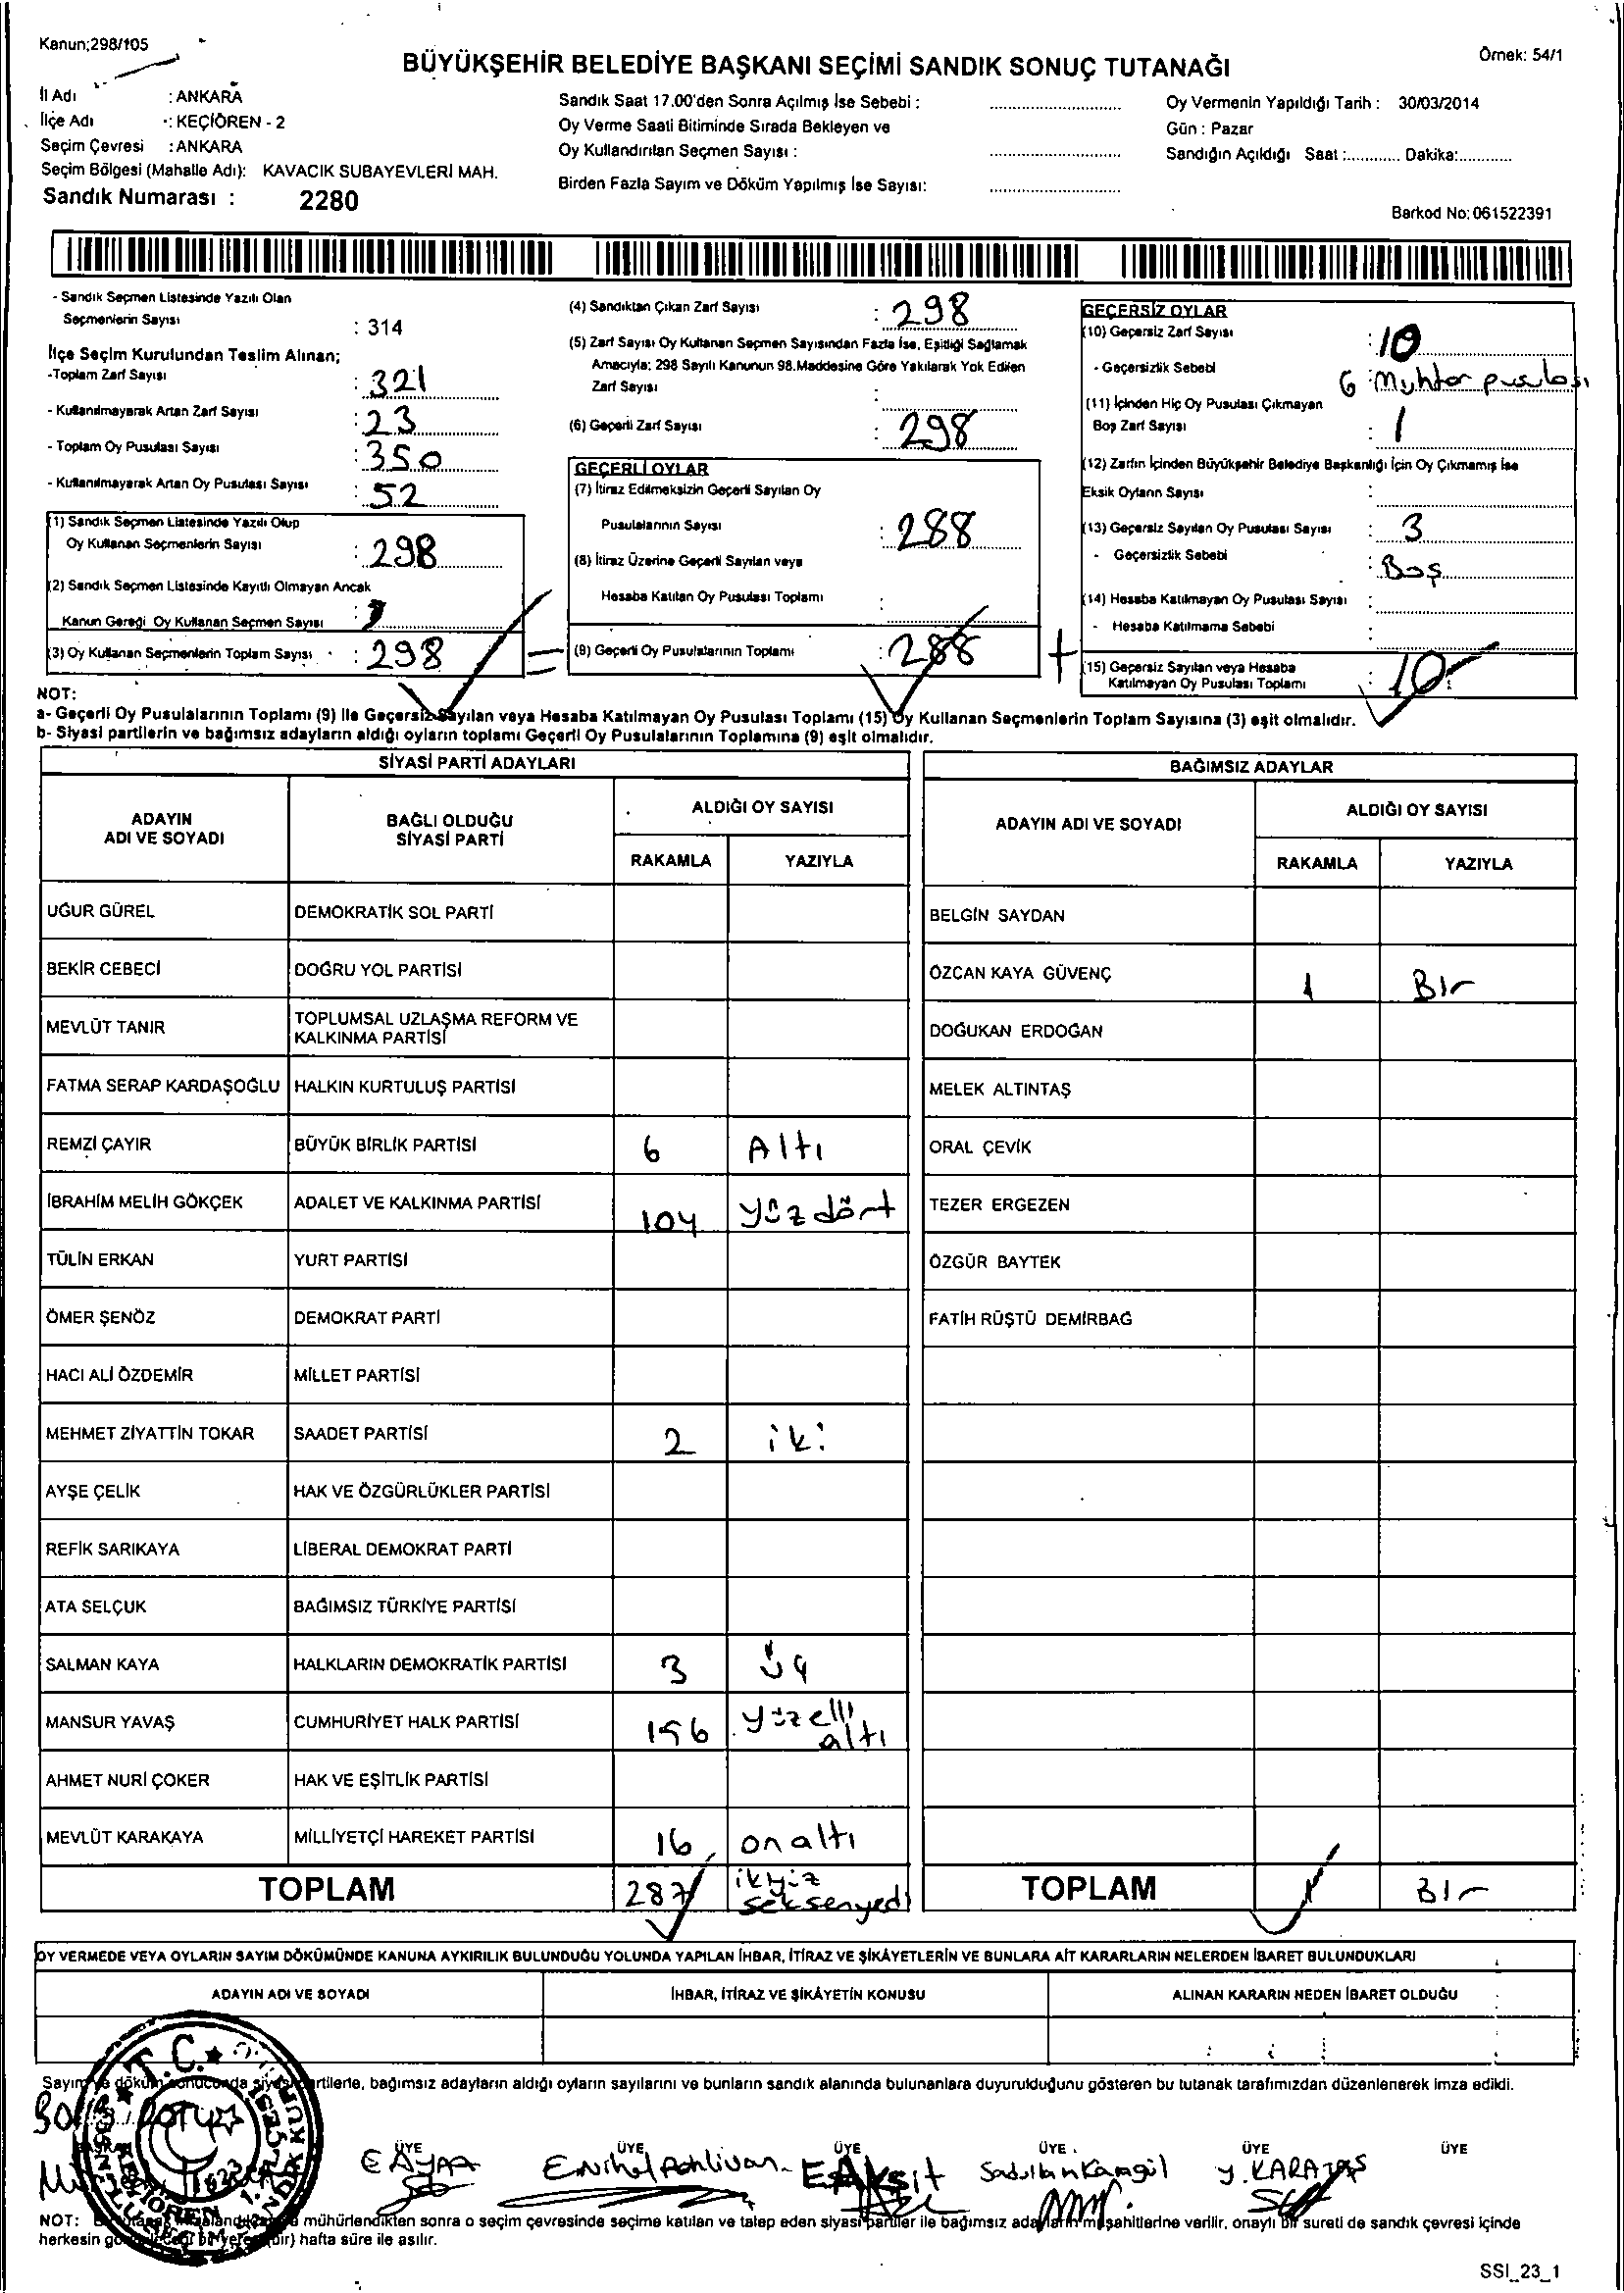 Kanun;298/105
Örnek: 54/1
BÜYÜKŞEHİR BELEDİYE BAŞKANI SEÇİMİ SANDIK SONUÇ TUTANAĞI
İl Adı : ANKARA
İlçe Adı : KEÇİÖREN - 2
Seçim Çevresi : ANKARA
Seçim Bölgesi (Mahalle Adı): KAVACIK SUBAYEVLERİ MAH.
Sandık Numarası : 2280
Sandık Saat 17.00'den Sonra Açılmış İse Sebebi :
Oy Verme Saati Bitiminde Sırada Bekleyen ve
Oy Kullandırılan Seçmen Sayısı :
Birden Fazla Sayım ve Döküm Yapılmış İse Sayısı:
Oy Vermenin Yapıldığı Tarih : 30/03/2014
Gün : Pazar
Sandığın Açıldığı Saat :............ Dakika:............
Barkod No: 061522391
- Sandık Seçmen Listesinde Yazılı Olan
Seçmenlerin Sayısı : 314
İlçe Seçim Kurulundan Teslim Alınan;
-Toplam Zarf Sayısı : 321
- Kullanılmayarak Artan Zarf Sayısı : 23
- Toplam Oy Pusulası Sayısı : 350
- Kullanılmayarak Artan Oy Pusulası Sayısı : 52
(1) Sandık Seçmen Listesinde Yazılı Olup
Oy Kullanan Seçmenlerin Sayısı : 298
(2) Sandık Seçmen Listesinde Kayıtlı Olmayan Ancak
Kanun Gereği Oy Kullanan Seçmen Sayısı :
(3) Oy Kullanan Seçmenlerin Toplam Sayısı : 298
=
(4) Sandıktan Çıkan Zarf Sayısı : 298
(5) Zarf Sayısı Oy Kullanan Seçmen Sayısından Fazla İse, Eşitliği Sağlamak
Amacıyla; 298 Sayılı Kanunun 98.Maddesine Göre Yakılarak Yok Edilen
Zarf Sayısı :
(6) Geçerli Zarf Sayısı : 298
GEÇERLİ OYLAR
(7) İtiraz Edilmeksizin Geçerli Sayılan Oy
Pusulalarının Sayısı : 288
(8) İtiraz Üzerine Geçerli Sayılan veya
Hesaba Katılan Oy Pusulası Toplamı :
(9) Geçerli Oy Pusulalarının Toplamı : 288
+
GEÇERSİZ OYLAR
(10) Geçersiz Zarf Sayısı : 10
- Geçersizlik Sebebi : 6 Muhtar pusulası
(11) İçinden Hiç Oy Pusulası Çıkmayan
Boş Zarf Sayısı : 1
(12) Zarfın İçinden Büyükşehir Belediye Başkanlığı İçin Oy Çıkmamış İse
Eksik Oyların Sayısı :
(13) Geçersiz Sayılan Oy Pusulası Sayısı : 3
- Geçersizlik Sebebi : Boş
(14) Hesaba Katılmayan Oy Pusulası Sayısı :
- Hesaba Katılmama Sebebi :
(15) Geçersiz Sayılan veya Hesaba
Katılmayan Oy Pusulası Toplamı : 10
NOT:
a- Geçerli Oy Pusulalarının Toplamı (9) ile Geçersiz Sayılan veya Hesaba Katılmayan Oy Pusulası Toplamı (15) Oy Kullanan Seçmenlerin Toplam Sayısına (3) eşit olmalıdır.
b- Siyasi partilerin ve bağımsız adayların aldığı oyların toplamı Geçerli Oy Pusulalarının Toplamına (9) eşit olmalıdır.
SİYASİ PARTİ ADAYLARI
ADAYIN ADI VE SOYADI
BAĞLI OLDUĞU SİYASİ PARTİ
ALDIĞI OY SAYISI
RAKAMLA YAZIYLA
UĞUR GÜREL DEMOKRATİK SOL PARTİ
BEKİR CEBECİ DOĞRU YOL PARTİSİ
MEVLÜT TANIR TOPLUMSAL UZLAŞMA REFORM VE
KALKINMA PARTİSİ
FATMA SERAP KARDAŞOĞLU HALKIN KURTULUŞ PARTİSİ
REMZİ ÇAYIR BÜYÜK BİRLİK PARTİSİ 6 Altı
İBRAHİM MELİH GÖKÇEK ADALET VE KALKINMA PARTİSİ 104 yüz dört
TÜLİN ERKAN YURT PARTİSİ
ÖMER ŞENÖZ DEMOKRAT PARTİ
HACI ALİ ÖZDEMİR MİLLET PARTİSİ
MEHMET ZİYATTİN TOKAR SAADET PARTİSİ 2 iki
AYŞE ÇELİK HAK VE ÖZGÜRLÜKLER PARTİSİ
REFİK SARIKAYA LİBERAL DEMOKRAT PARTİ
ATA SELÇUK BAĞIMSIZ TÜRKİYE PARTİSİ
SALMAN KAYA HALKLARIN DEMOKRATİK PARTİSİ 3 üç
MANSUR YAVAŞ CUMHURİYET HALK PARTİSİ 156 yüzelli
altı
AHMET NURİ ÇOKER HAK VE EŞİTLİK PARTİSİ
MEVLÜT KARAKAYA MİLLİYETÇİ HAREKET PARTİSİ 16 onaltı
TOPLAM 287 ikiyüz
seksenyedi
BAĞIMSIZ ADAYLAR
ADAYIN ADI VE SOYADI
ALDIĞI OY SAYISI
RAKAMLA YAZIYLA
BELGİN SAYDAN
ÖZCAN KAYA GÜVENÇ 1 Bir
DOĞUKAN ERDOĞAN
MELEK ALTINTAŞ
ORAL ÇEVİK
TEZER ERGEZEN
ÖZGÜR BAYTEK
FATİH RÜŞTÜ DEMİRBAĞ
TOPLAM 1 Bir
OY VERMEDE VEYA OYLARIN SAYIM DÖKÜMÜNDE KANUNA AYKIRILIK BULUNDUĞU YOLUNDA YAPILAN İHBAR, İTİRAZ VE ŞİKÂYETLERİN VE BUNLARA AİT KARARLARIN NELERDEN İBARET BULUNDUKLARI
ADAYIN ADI VE SOYADI İHBAR, İTİRAZ VE ŞİKÂYETİN KONUSU ALINAN KARARIN NEDEN İBARET OLDUĞU
T.C.
Sayım ve döküm sonucunda siyasi partilerle, bağımsız adayların aldığı oyların sayılarını ve bunların sandık alanında bulunanlara duyurulduğunu gösteren bu tutanak tarafımızdan düzenlenerek imza edildi.
ÜYE ÜYE ÜYE ÜYE ÜYE ÜYE
E AYAR E.Nihel Pehlivan E.Akşit Sadullah Karagül Y.KARATAŞ
mühürlendikten sonra o seçim çevresinde seçime katılan ve talep eden siyasi partiler ile bağımsız adayların müşahitlerine verilir, onaylı bir sureti de sandık çevresi içinde
herkesin (bir) hafta süre ile asılır.
SSI_23_1